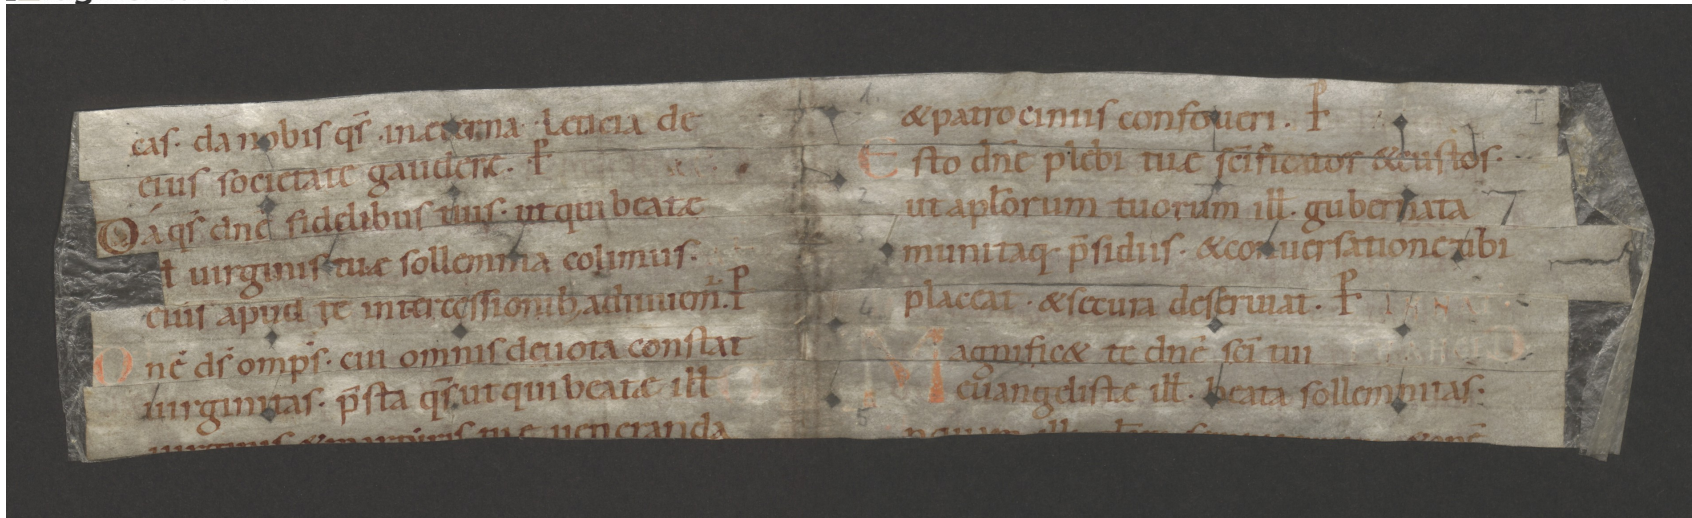 eas. da nobis qs̄. in eterna leticia de
eius societate gaudere. P̄
Da qs̄ dn̄e fidelibus tuis. ut qui beatę
ƚ uirginis tuę sollemnia colimus.
eius apud te intercessionib; adiuuem̄. P̄
One̅ ds̄ omp̄s. cui omnis deuota constat
uirginitas. p̄sta qs̄ ut qui beatę iƚƚ
uirginis & martiris tuę ueneranda
& patrociniis confoueri. P̄
Esto dn̄e plebi tuę sc̄ificator & custos.
ut apl̄orum tuorum iƚƚ. gubernata
munitaq; p̄sidiis. & conuersatione tibi
placeat. & secura deseruiat. P̄
Magnific& te dn̄e sc̄i tui
euangelistę iƚƚ. beata sollemnitas.